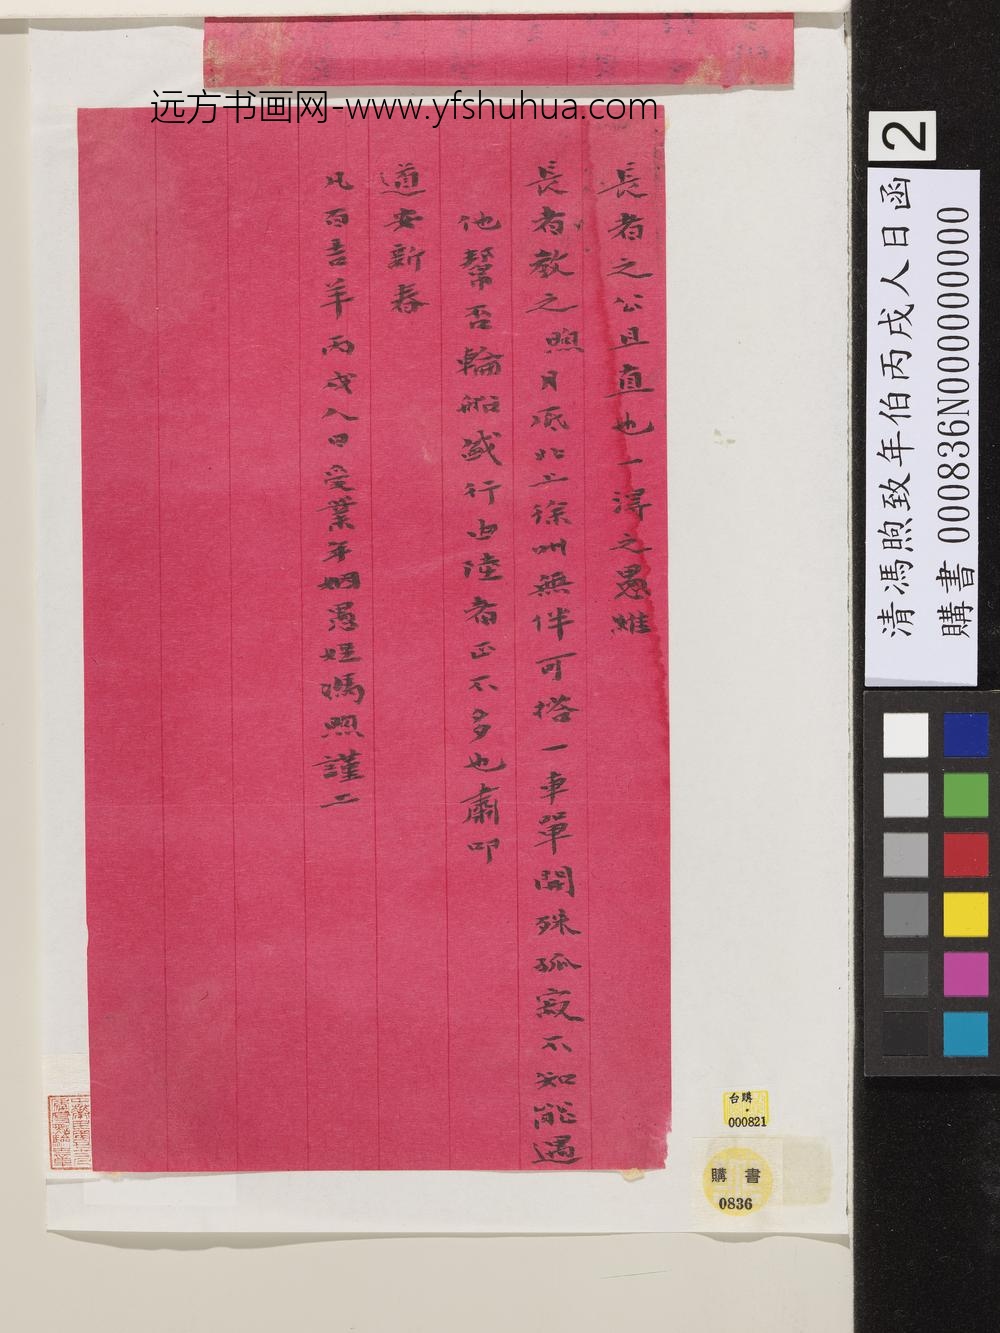 远方书画网-www.yfshuhua.com
長者之公且直也一得之愚維
長者教之煦月底北上徐州無伴可搭一車單開殊孤寂不知能遇
他幫否輪船盛行由陸者正不多也肅叩
道安新春
凡百吉羊丙戌人日受業年姻愚姪馮煦謹上
2
清馮煦致年伯丙戌人日函
購書 000836N000000000
台購
000821
購書
0836